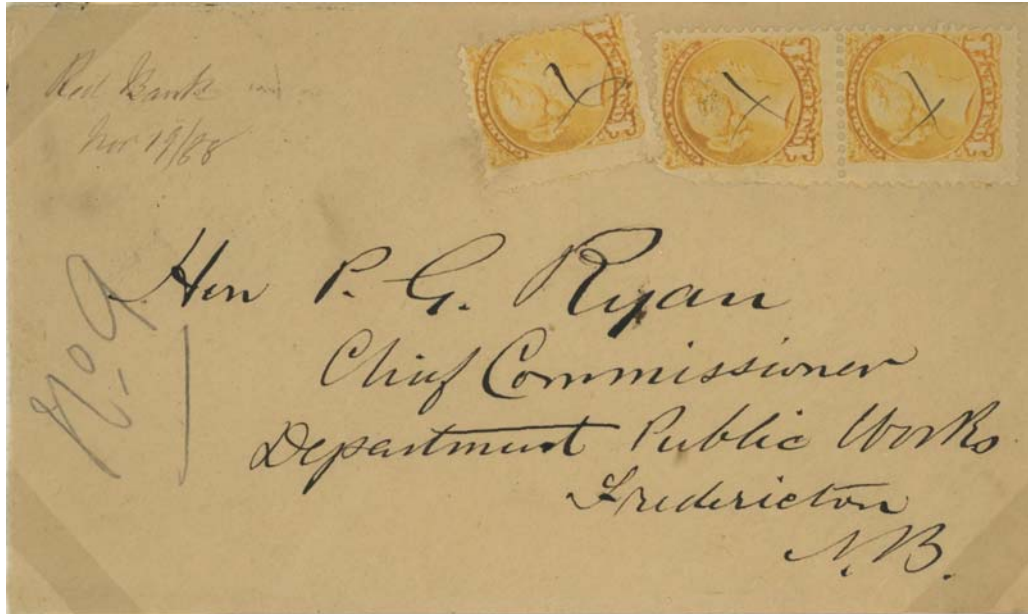 Red Bank
Nov 19/88
No. 9
Hon P. G. Ryan
Chief Commissioner
Department Public Works
Fredericton
N.B.